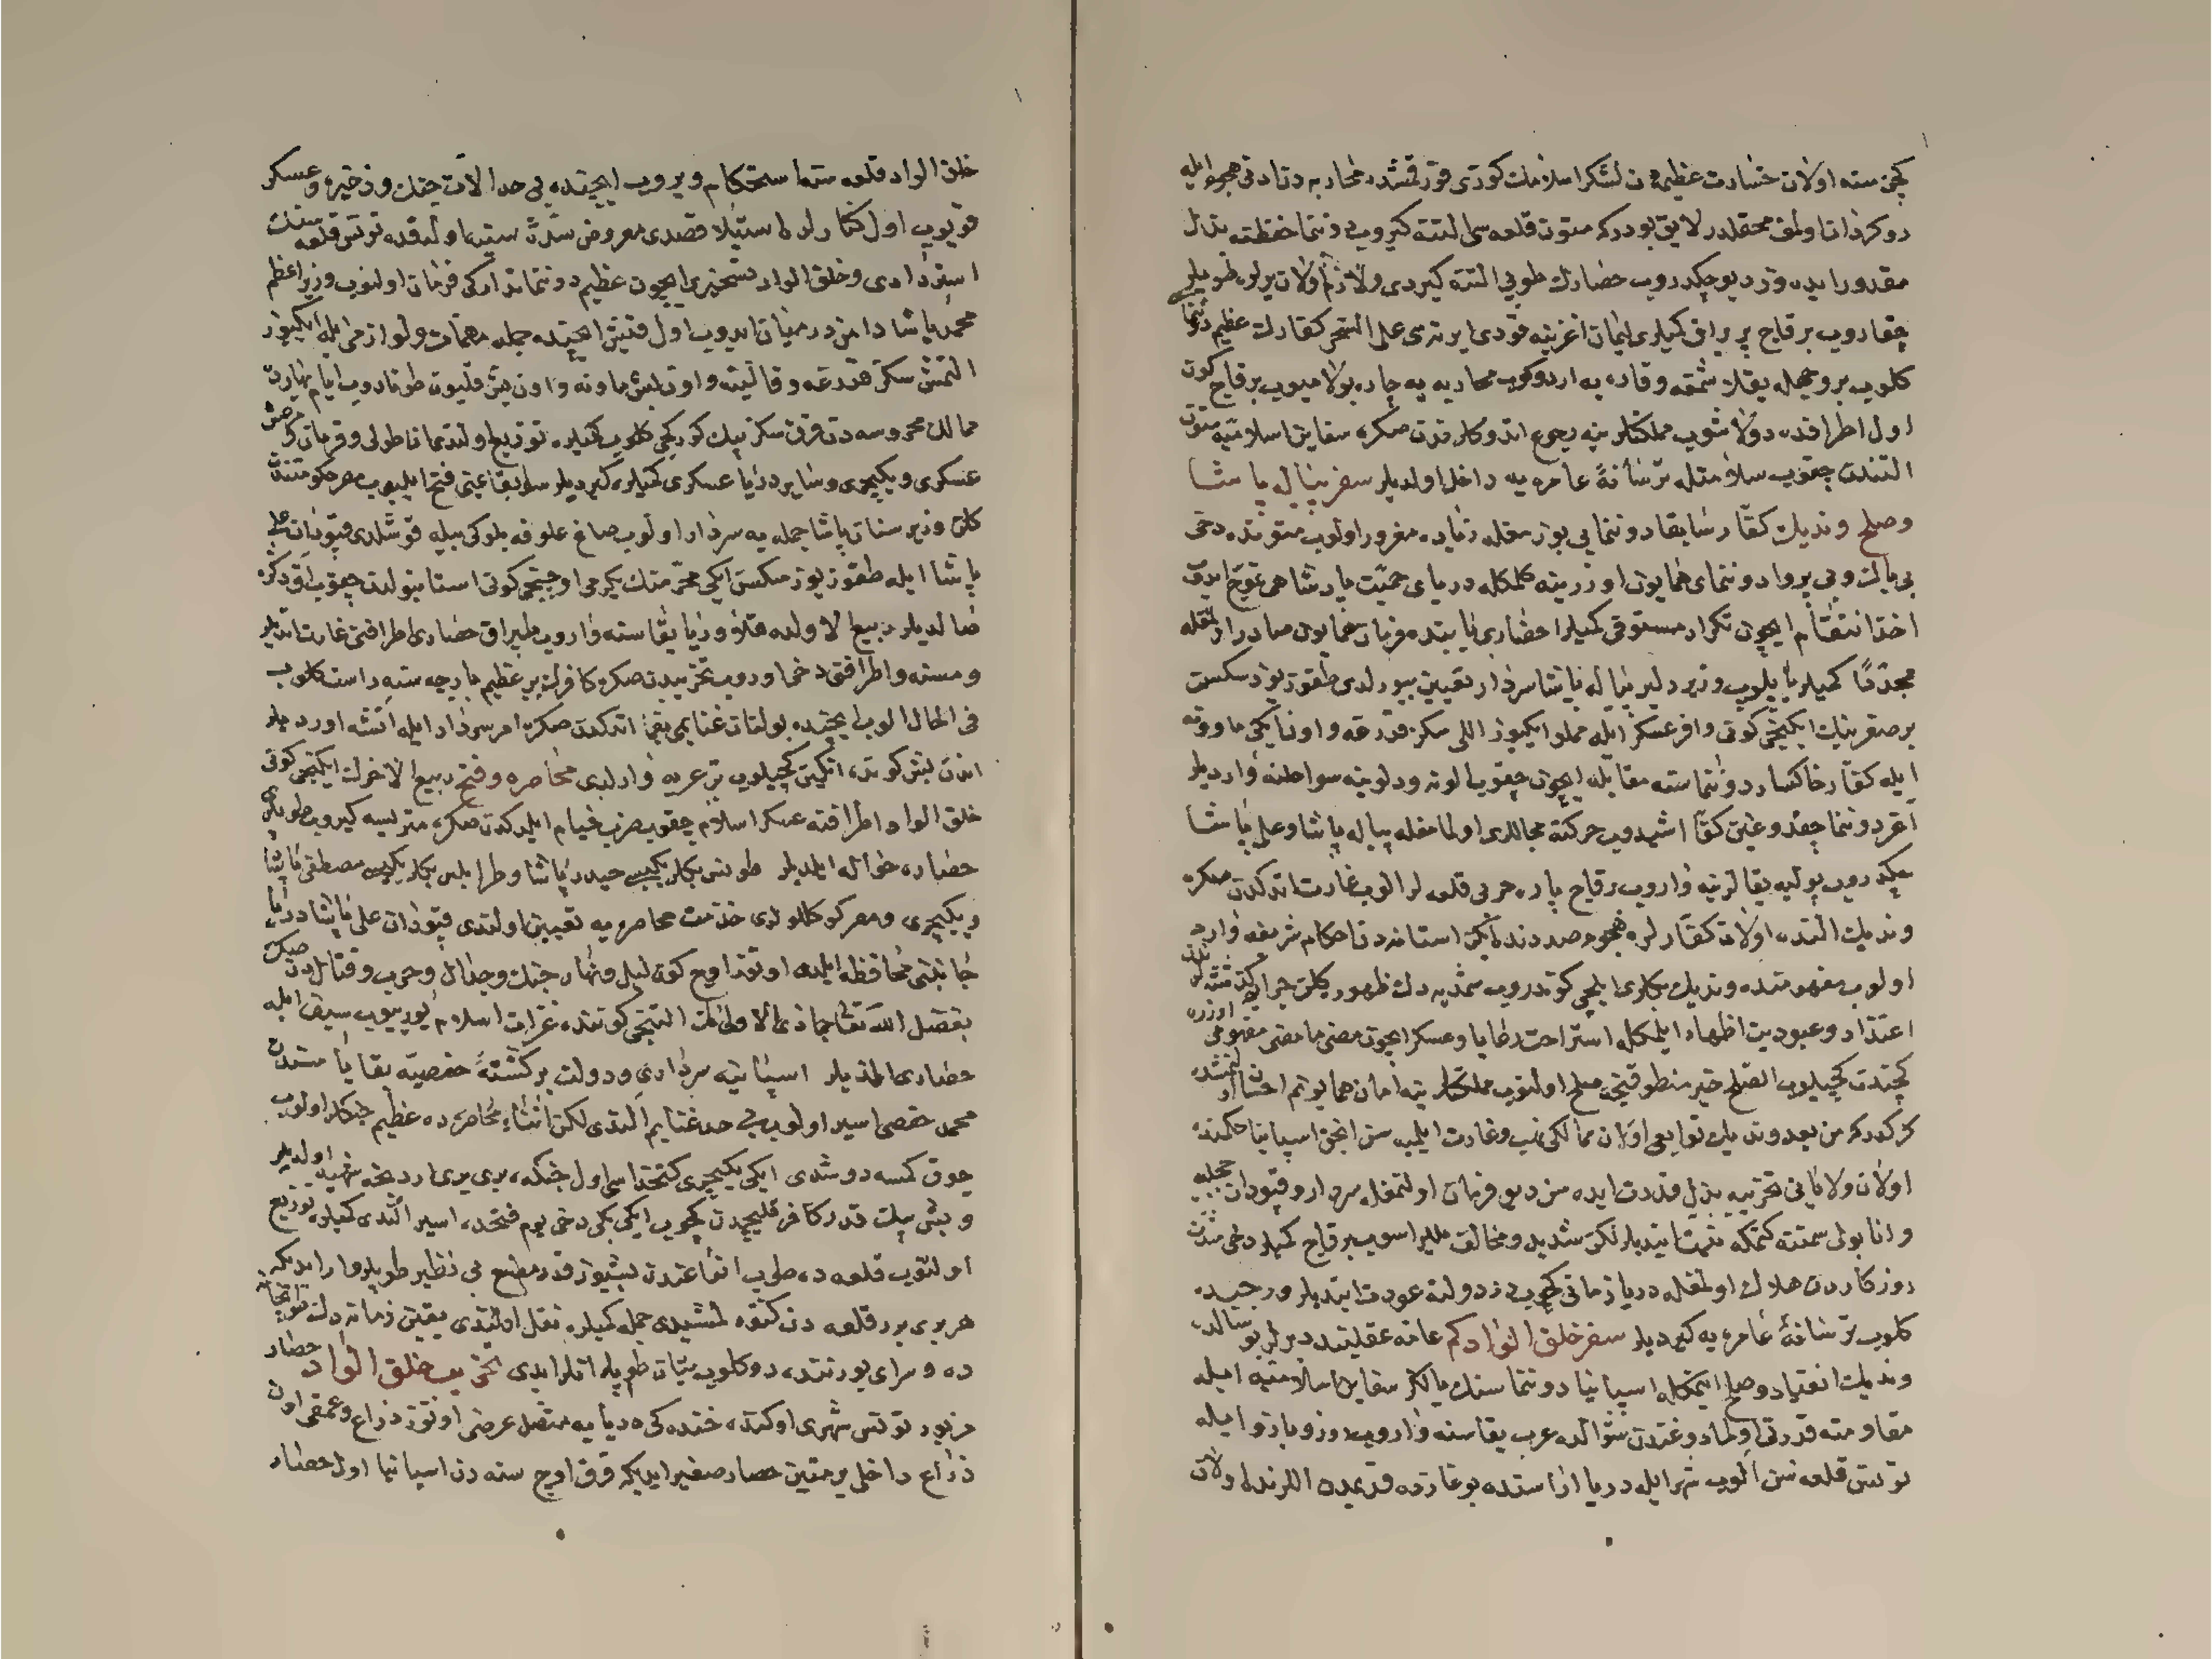 کچن سنه اولان خسارت عظیمه دن لشکر اسلامك کوزی قورقمشدر محاربه دن و هجوم ایله
روکردان اولمق محققدر لایق بودرکه متون قلعه سی التنه کیروب دوننما حفظنه بذل
مقدور ایده وز دیو چکدروب حصارك طوپی التنه کیردی ولازم اولان یرلره طوپلر
چقاروب برقاج بر براقی کمیلری لیمان اغزینه قودی ایرته سی علی السحر کفارك عظیم دوننماسی
کلوب بر وجهله یقلاشمغه وقاره یه اردوکوب محاربه یه چاره بولامیوب برقاج کون
اول اطرافده دولاشوب مملکتلرینه رجوع اتدوکلرندن صکره سفاین اسلامیه متون
التندن چقوب سلامتله ترسانهٔ عامره یه داخل اولدیلر سفر پیاله پاشا
وصلح وندیك کفار سابقا دوننمایی بوزمغله زیاده مغرور اولوب متونده دخی
بی باك وبی پروا دوننمای همایون اوزرینه کلمکله دریای حمیت پادشاهی تموج ایدوب
اخذ انتقام ایچون تکرار مستوفی کمیلر احضاری بابنده فرمان همایون صادر اولمغله
مجددا کمیلر یاپیلوب وزیر دلیر پیاله پاشا سردار تعیین بیورلدی طقوز یوز سکسن
بر صفرینك ایکنجی کونی وافر عسکر ایله مملو ایکیوز اللی سکز قدرغه و اون ایکی ماوونه
ایله کفار خاکسار دوننماسنه مقابله ایچون چقوب الونه ودلونیه سواحلنه واردیلر
اغر دوننما چقدوغین کفار اشیدوب حرکته مجاللری اولمامغله پیاله پاشا وعلی پاشا
چکدروب پولیه یقالرینه واروب برقاج پاره حربی قلعه لر الوب غارت اتدکدن صکره
وندیك التنده اولان کفارلره هجوم صددنده ایکن استانه دن احکام شریفه وارد
اولوب مفهومنده وندیك بکلری ایلچی کوندروب شمدیه دك ظهوره کلن جرایمدن
اعتذار وعبودیت اظهار ایلمکله استراحت رعایا وعسکر ایچون مضی ما مضی مفهومی اوزره
کچندن کچیلوب الصلح خیر منطوقنجه صلح اولنوب مملکتلرینه امان همایونم احسان اولنمشدر
کرکدرکه من بعد وندیك توابعی اولان ممالکی نهب وغارت ایلمیه سن انجق اسپانیا حکمنده
اولان ولایاتی تخریبه بذل قدرت ایده سن دیو فرمان اولنمغله سردار وقپودان جمله
واناپولی سمتنه کتمکه نیت ایتدیلر لکن شدید ومخالف یللر اسوب برقاج کمیلر دخی شدت
روزکاردن هلاك اولمغله دریا زمانی کچوب در دولته عودت ایتدیلر ورجبده
کلوب ترسانهٔ عامره یه کیردیلر سفر خلق الواد کم عامه عقلینده دیرلر بو سالده
وندیك انقیاد وصلح اتمکله اسپانیا دوننماسنك یالکز سفاین اسلامیه ایله
مقاومته قدرتی اولمادوغندن شوالده عرب یقاسنه واروب زور بازو ایله
تونس قلعه سن الوب شهر ایله دریا اراسنده بوغازده قدیمدن اللرنده اولان
خلق الواد قلعه سنه استحکام ویروب ایچنده بی حد الات جنك و ذخیره و عسکر
قویوب اول کفارلره استیلا قصدی معروض سدهٔ سنیه اولدقده تونس قلعه سنك
استردادی وخلق الواد تسخیری ایچون عظیم دوننما تدارکی فرمان اولنوب وزیر اعظم
محمد پاشا دامن در میان ایدوب اول قیش ایچنده جمله مهمات ولوازمی ایله ایکیوز
التمش سکز قدرغه وقالیته و اون بش ماونه و اون بش قلیون طونادوب ایام بهارده
ممالك محروسه دن قرق سکز بیك کورکجی کلوب کمیلره توزیع اولندی اناطولی و قرمان و مرعش
عسکری ویکیچری وسایر دریا عسکری کمیلره کیردیلر سابقا یمنی فتح ایلیوب مصر حکومتندن
کلن وزیر سنان پاشا جمله یه سردار اولوب صاغ علوفه بلوکی بیله قوشلدی قپودان علی
پاشا ایله طقوز یوز سکسن ایکی محرمنك یکرمی اوچنجی کونی استانبولدن چقوب اق دکزه
صالدیلر ربیع الاولده قلاوریا یقاسنه واروب طبراق حصاری اطرافنی غارت اتدیلر
ومسنه واطرافنی دخی اوروب تخریبدن صکره کافرك بر عظیم بارچه سنه راست کلوب
فی الحال الوب ایچنده بولنان غنایمی یغما اتدکدن صکره امر سردار ایله اتشه اوردیلر
اندن بش کونده انکین کچیلوب بر عربه وارلدی محاصره وفتح ربیع الاخرك ایکنجی کونی
خلق الواد اطرافنه عسکر اسلام چقوب ضرب خیام ایلدکدن صکره متریسه کیروب طوپلری
حصاره حواله ایلدیلر طونس بکلربکیسی حیدر پاشا وطرابلس بکلربکیسی مصطفی پاشا
ویکیچری ومصر کوکللولری خدمت محاصره یه تعیین اولندی قپودان علی پاشا دریا
جانبنی محافظه ایلدی اوتوز اوچ کون لیل ونهار جنك وجدال وحرب وقتالدن صکره
بفضل الله تعالی جماذی الاولی نك التنجی کوننده غزات اسلام یوریوب سیف ایله
حصاری الدیلر اسپانیه سرداری ودولت برکشتهٔ حفصیه بقایاسندن
محمد حفصی اسیر اولوب بی حد غنایم الندی لکن اثنای محاصره ده عظیم جنکلر اولوب
چوق کمسه دوشدی ایکی یکیچری کتخداسی اول جنکده بری بری اردنجه شهید اولدیلر
وبش بیك قدر کافر قلیجدن کچوب ایکی بیکی دخی یوم فتحده اسیر الندی کمیلره توزیع
اولنوب قلعه ده صلیب انقاعندن بشیوز قدر مطبع بی نظیر طوپلر وار ایدیکه
هر بری برر قلعه دن کنوه لمشیدی جمله کمیلره نقل اولندی یقین زمانه دك طوپخانه
ده وسرای بورننده دوکلوب یتان طوپلر انلر ایدی تخریب خلق الواد حصار
مزبور تونس شهری اوکنده خندقی دریایه متصل عرضی اوتوز ذراع وعمقی اون
ذراع داخلی بر متین حصار صغیر ایدیکه قرق اوچ سنه دن اسپانیا اول حصار